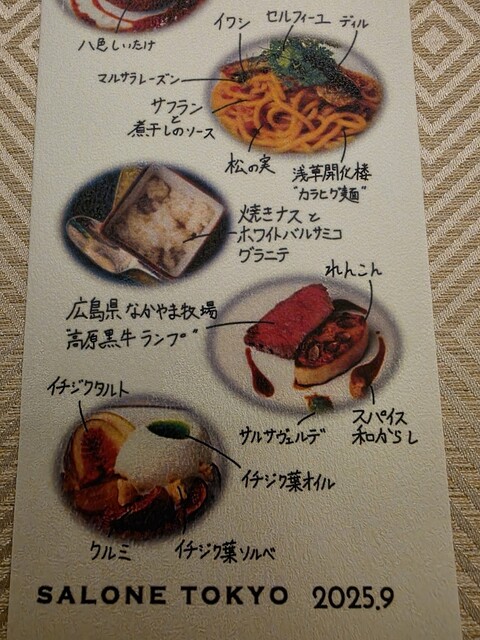 八色しいたけ
イワシ
セルフィーユ
ディル
マルサラレーズン
サフラン
と
煮干しのソース
松の実
浅草開化楼
"カラヒグ麺"
焼きナスと
ホワイトバルサミコ
グラニテ
れんこん
広島県 なかやま牧場
"高原黒牛 ランプ"
サルサヴェルデ
スパイス
和からし
イチジクタルト
イチジク葉オイル
クルミ
イチジク葉ソルベ
SALONE TOKYO 2025.9